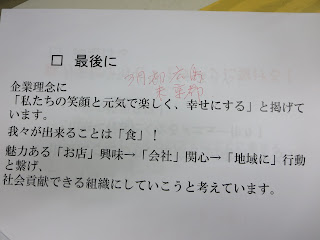 □ 最後に
京都
企業理念に
「私たちの笑顔と元気で楽しく、幸せにする」と掲げて
います。
我々が出来ることは「食」！
魅力ある「お店」興味→「会社」関心→「地域に」行動
と繋げ、
社会貢献できる組織にしていこうと考えています。